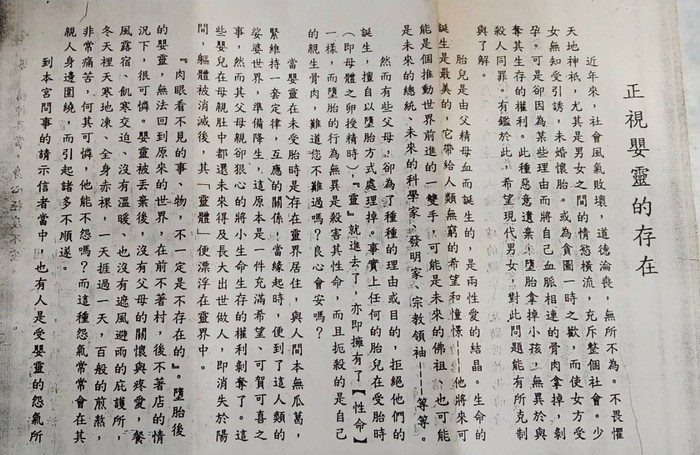 正視嬰靈的存在
近年來，社會風氣敗壞，道德淪喪，無所不為。不畏懼
天地神祇，尤其是男女之間的情慾橫流，充斥整個社會。少
女無知受引誘，未婚懷胎。或為貪圖一時之歡，而使女方受
孕。可是卻因為某些理由而將自己血脈相連的骨肉拿掉，剝
奪其生存的權利。此種惡意遺棄、墮胎拿掉小孩，無異於與
殺人同罪。有鑑於此，希望現代男女，對此問題能有所克制
與了解。
胎兒是由父精母血而誕生的，是兩性愛的結晶。生命的
誕生是最美的，它帶給人類無窮的希望和憧憬——他將來可
能是個推動世界前進的一雙手，可能是未來的佛祖、也可能
是未來的總統、未來的科學家、發明家、宗教領袖——等等。
然而有些父母，卻為了種種的理由或目的，拒絕他們的
誕生，擅自以墮胎方式處理掉。事實上任何的胎兒在受胎時
（即母體之卵授精時）『靈』就進去了，亦即擁有了【性命】
一樣，而墮胎的行為無異是殺害其性命，而且扼殺的是自己
的親生骨肉，難道您不難過嗎？良心會安嗎？
當嬰靈在未受胎時是存在靈界居住，與人間本無瓜葛，
緊維持一套定律，互應的關係，當緣起時，便到了這人類的
娑婆世界，準備降生，這原本是一件充滿希望、可賀可喜之
事，然而其父母親卻狠心的將小生命生存的權利剝奪了。這
些嬰兒在母親肚中都還未來得及長大出世做人，即消失於陽
間，軀體被消滅後，其「靈體」便漂浮在靈界中。
『肉眼看不見的事、物，不一定是不存在的』。墮胎後
的嬰靈，無法回到原來的世界，在前不著村，後不著店的情
況下，很可憐。嬰靈被丟棄後，沒有父母的關懷與疼愛，餐
風露宿、飢寒交迫、沒有溫暖、也沒有遮風避雨的庇護所，
冬天裡天寒地凍、全身赤裸，一天捱過一天，百般的煎熬，
非常痛苦，何其可憐，他能不怨嗎？而這種怨氣常常會在其
親人身邊圍繞，而引起諸多不順遂。
到本宮問事的請示信者當中，也有人是受嬰靈的怨氣所